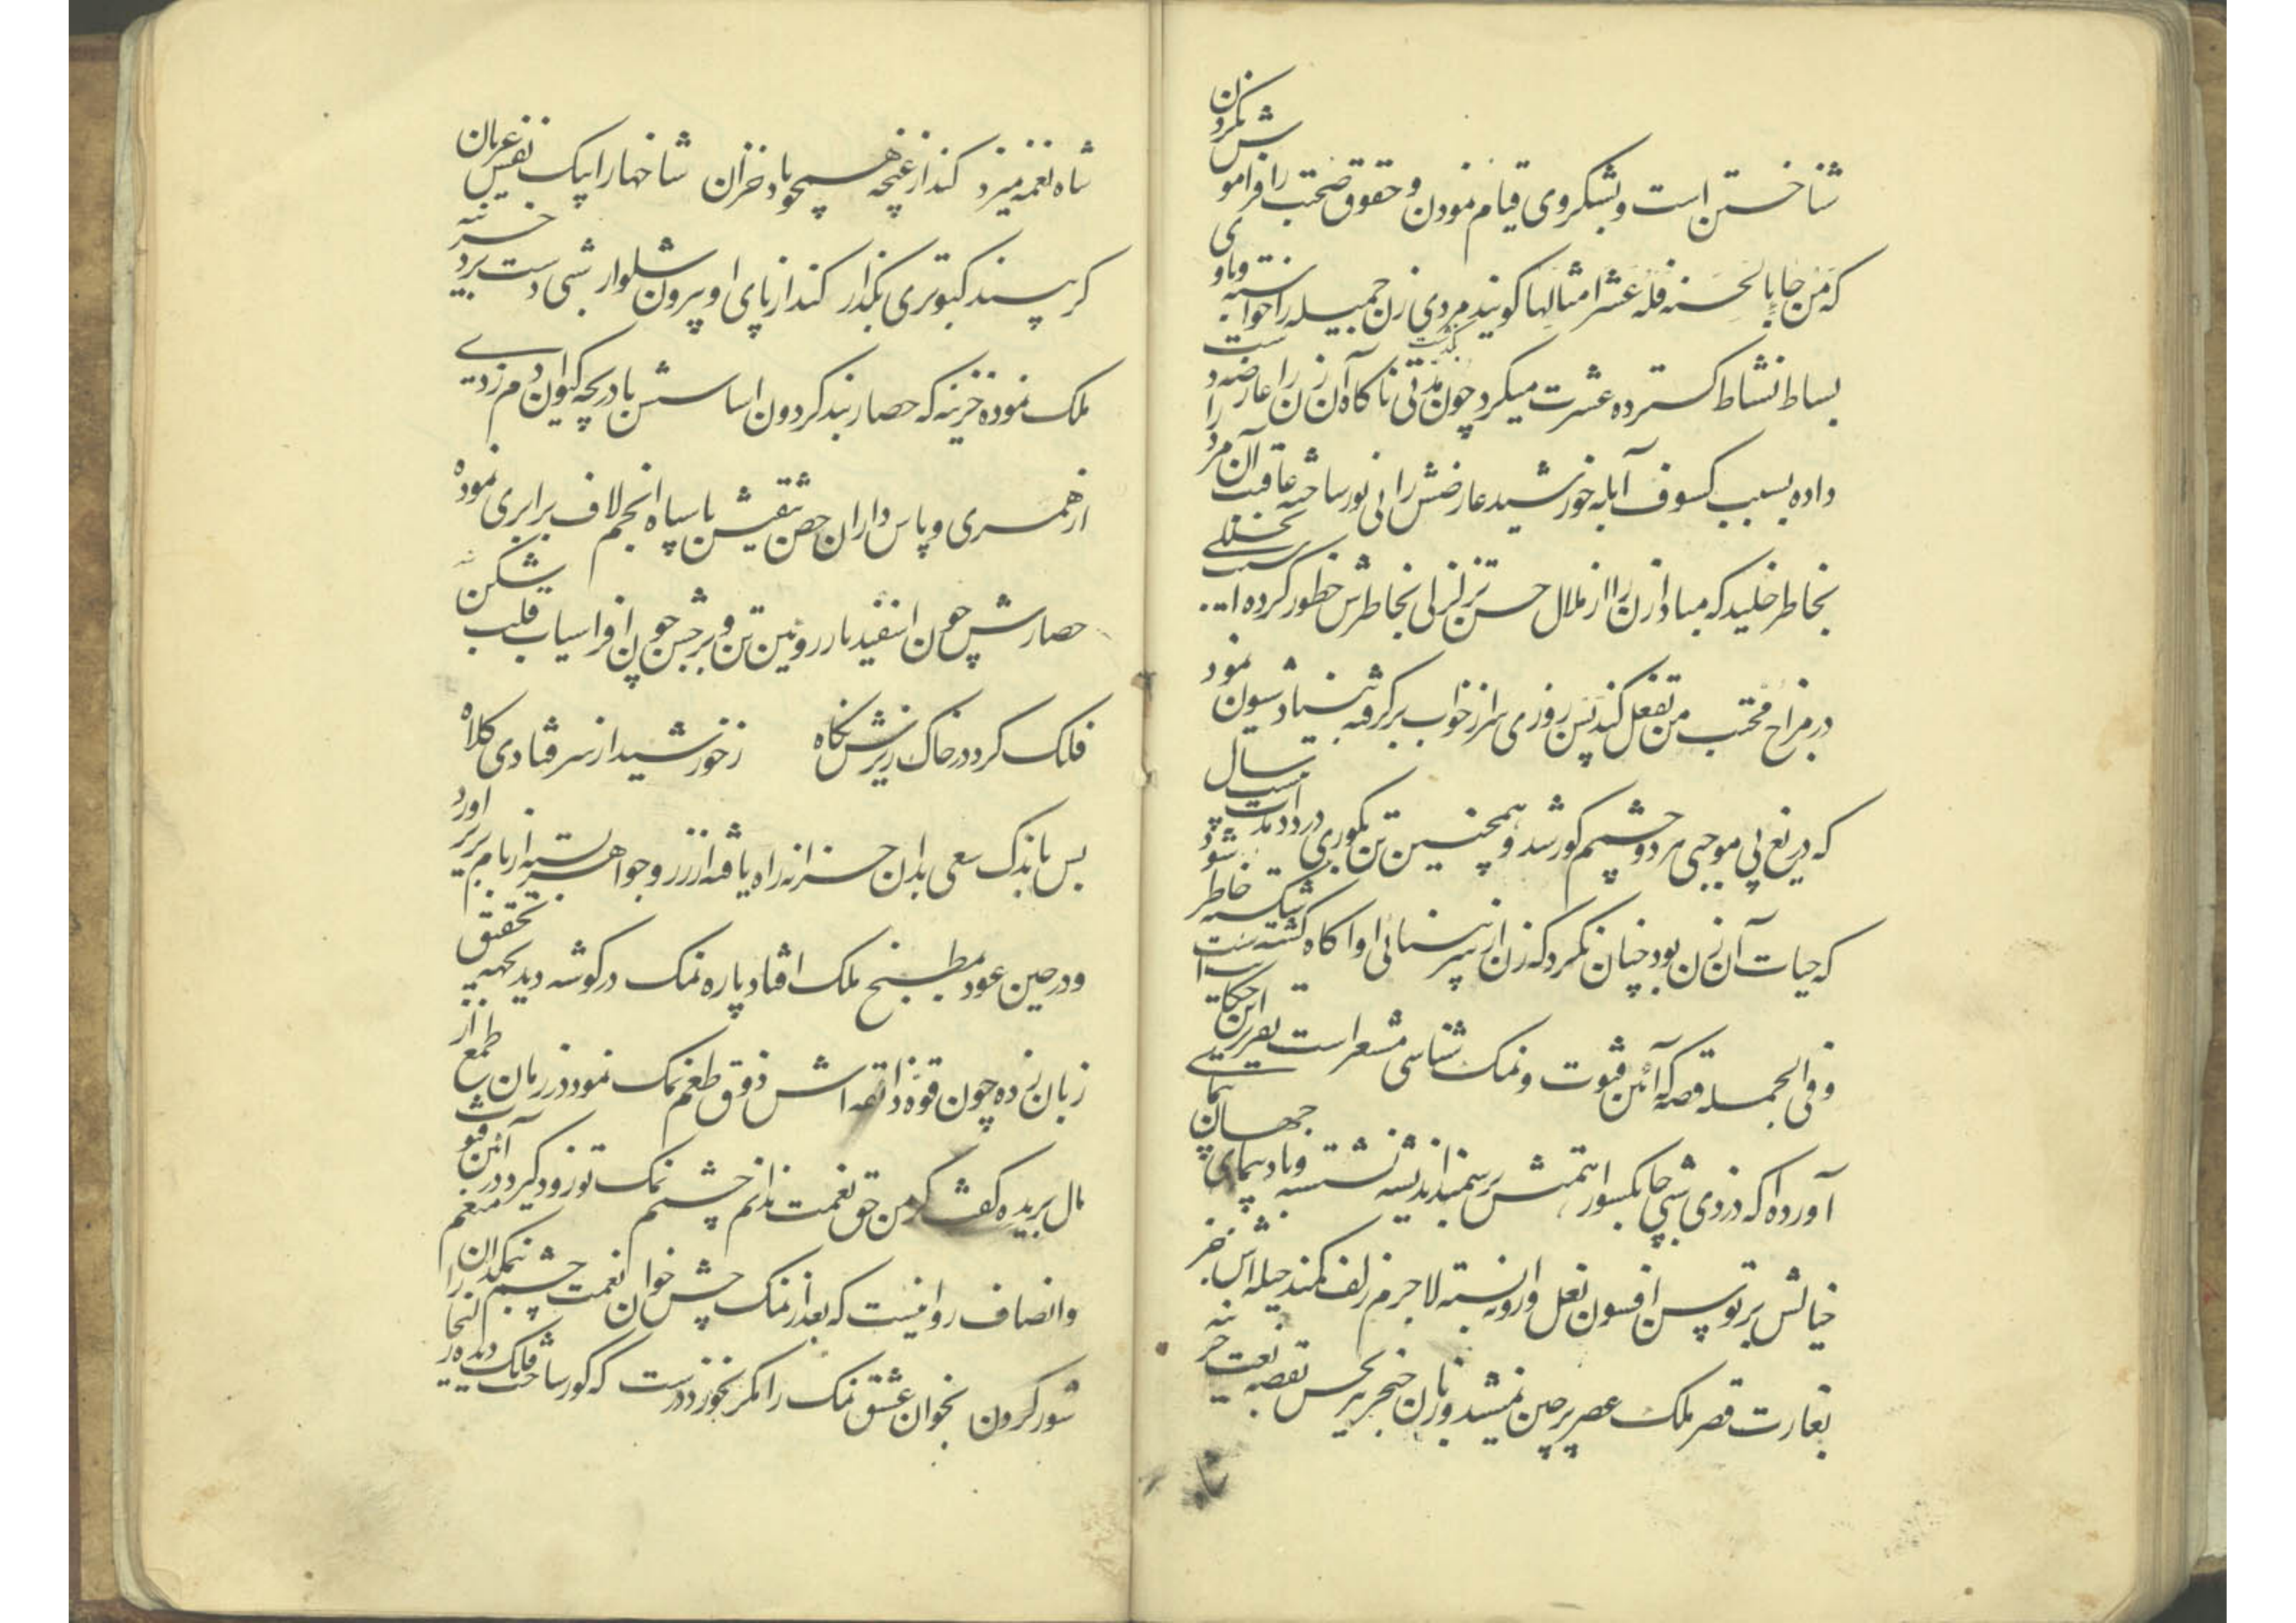 شناختن است و بشکر وی قیام نمودن و حقوق صحبت را فراموش نکردن
که من جا بالحسنه فله عشر امثالها کویند مردی زن جمیله را خواسته و با وی
بساط نشاط کسترده عشرت میکرد چون مدتی بگذشت ناکاه آن زن را عارضه دست
داده بسبب کسوف آبله خورشید عارضش را بی نور ساخته عاقبت آن مرد را
بخاطر خلید که مبادا زن را از ملال حسن تزلزلی بخاطرش خطور کرده
در مزاج محبت من تفعل کند پس روزی سر از خواب بر کرفته بنیاد شیون نمود
که دریغ بی موجبی هر دو چشمم کور شد و همچنین تن بکوری در داد مدت بیست سال
که حیات آن زن بود چنان نکرد که زن از سر پنهانی او آکاه کشته شکسته خاطر شود
و فی الجمله قصه که آئین فتوت و نمک شناسی مشعر است تقریر این حکایت است
آورده اند که دزدی شبی چابکسوار همتش بر سمند اندیشه نشسته و باد پیمای جهان پیمای
خیالش بر توسن افسون نعل وارونه بسته لاجرم زلف کمند حیله اش جز
بغارت قصر ملک عصر پر چین نمیشد و زبان خنجر تیز بجس نقصه نعت خزینه
شاه
شاه نغمه میزد کند از غنچه همچو باد خزان شاخها را بیک نفس عریان
کر پسند کبوتری بکذار کند از پای او برون شلوار شبی دست برد خزینه
ملک نموده خزینه که حصار بند کردون اساسش با دریچه کیوان دم زدی
از همسری و پاس داران حصن متقیش با سپاه انجم لاف برابری نموده
حصارش چون اسفندیار روئین تن و برجش چون افراسیاب قلب شکن
فلک کرد در خاک ریزش نکاه ز خورشید از سر فتادی کلاه
بس باندک سعی بدان خزانه راه یافته از زر و جواهر بسته از بام بزیر آورد
و در حین عود بمطبخ ملک افتاد پاره نمک در کوشه دید بجهه تحقیق
زبان زده چون قوه ذائقه اش ذوق طعم نمک نمود در زمان طمع از
مال بریده کفت کر من حق نعمت ندانم چشمم نمک تو زود کیرد در آئین فتوت
و انصاف روا نیست که بعد از نمک چش خوان نعمت چشم نمکدان منعم را
شور کردن بخوان عشق نمک را مکر نخورد درست که کور ساخت فلک دیده